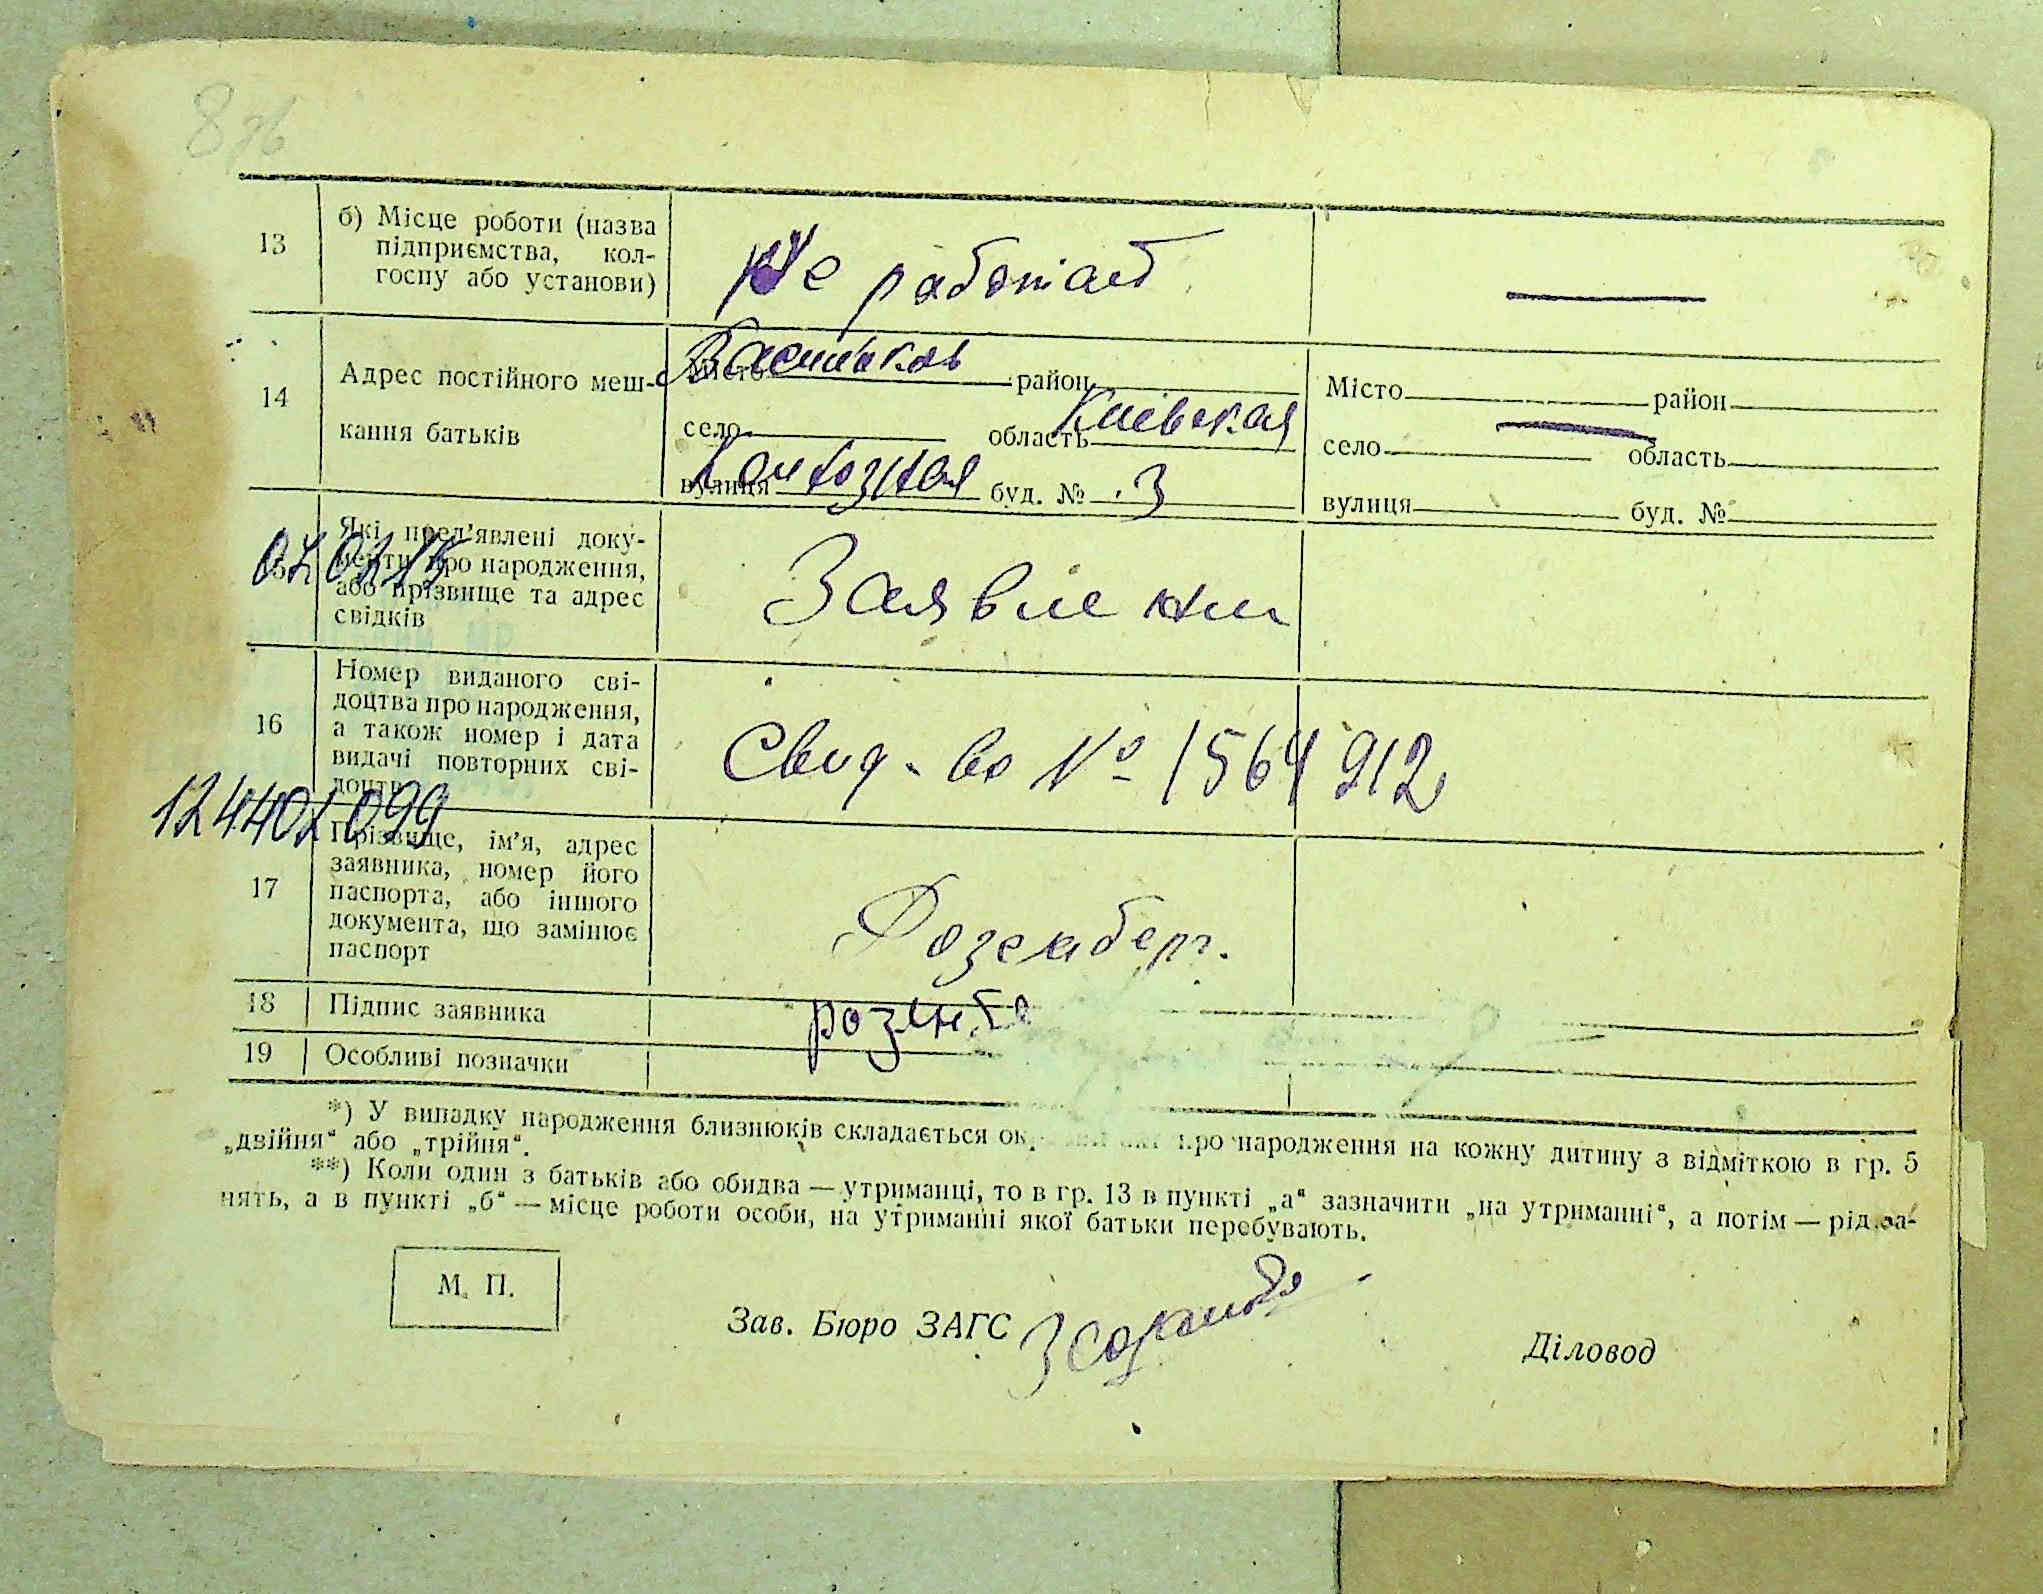 8 зв
13
б) Місце роботи (назва
підприємства, кол-
госпу або установи)
Не работает
14
Адрес постійного меш-
кання батьків
Місто Васильков район
село область Киевская
вулиця буд. № 3
Місто район
село область
вулиця буд. №
Які пред'явлені доку-
менти про народження,
або прізвище та адрес
свідків
Заявление
16
Номер виданого сві-
доцтва про народження,
а також номер і дата
видачі повторних сві-
доцтв
Свид-во № 1564912
124402099
17
Прізвище, ім'я, адрес
заявника, номер його
паспорта, або іншого
документа, що замінює
паспорт
Розенберг.
18
Підпис заявника
розенбе
19
Особливі позначки
*) У випадку народження близнюків складається про народження на кожну дитину з відміткою в гр. 5
„двійня“ або „трійня“.
**) Коли один з батьків або обидва — утриманці, то в гр. 13 в пункті „а“ зазначити „на утриманні“, а потім — рід за-
нять, а в пункті „б“ — місце роботи особи, на утриманні якої батьки перебувають.
М. П.
Зав. Бюро ЗАГС
Діловод